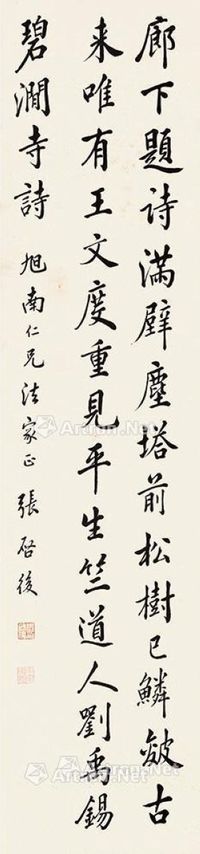 廊下題詩滿壁塵塔前松樹已鱗皴古
来唯有王文度重見平生竺道人劉禹錫
碧澗寺詩 旭南仁兄法家正 張啓後
Artron.Net